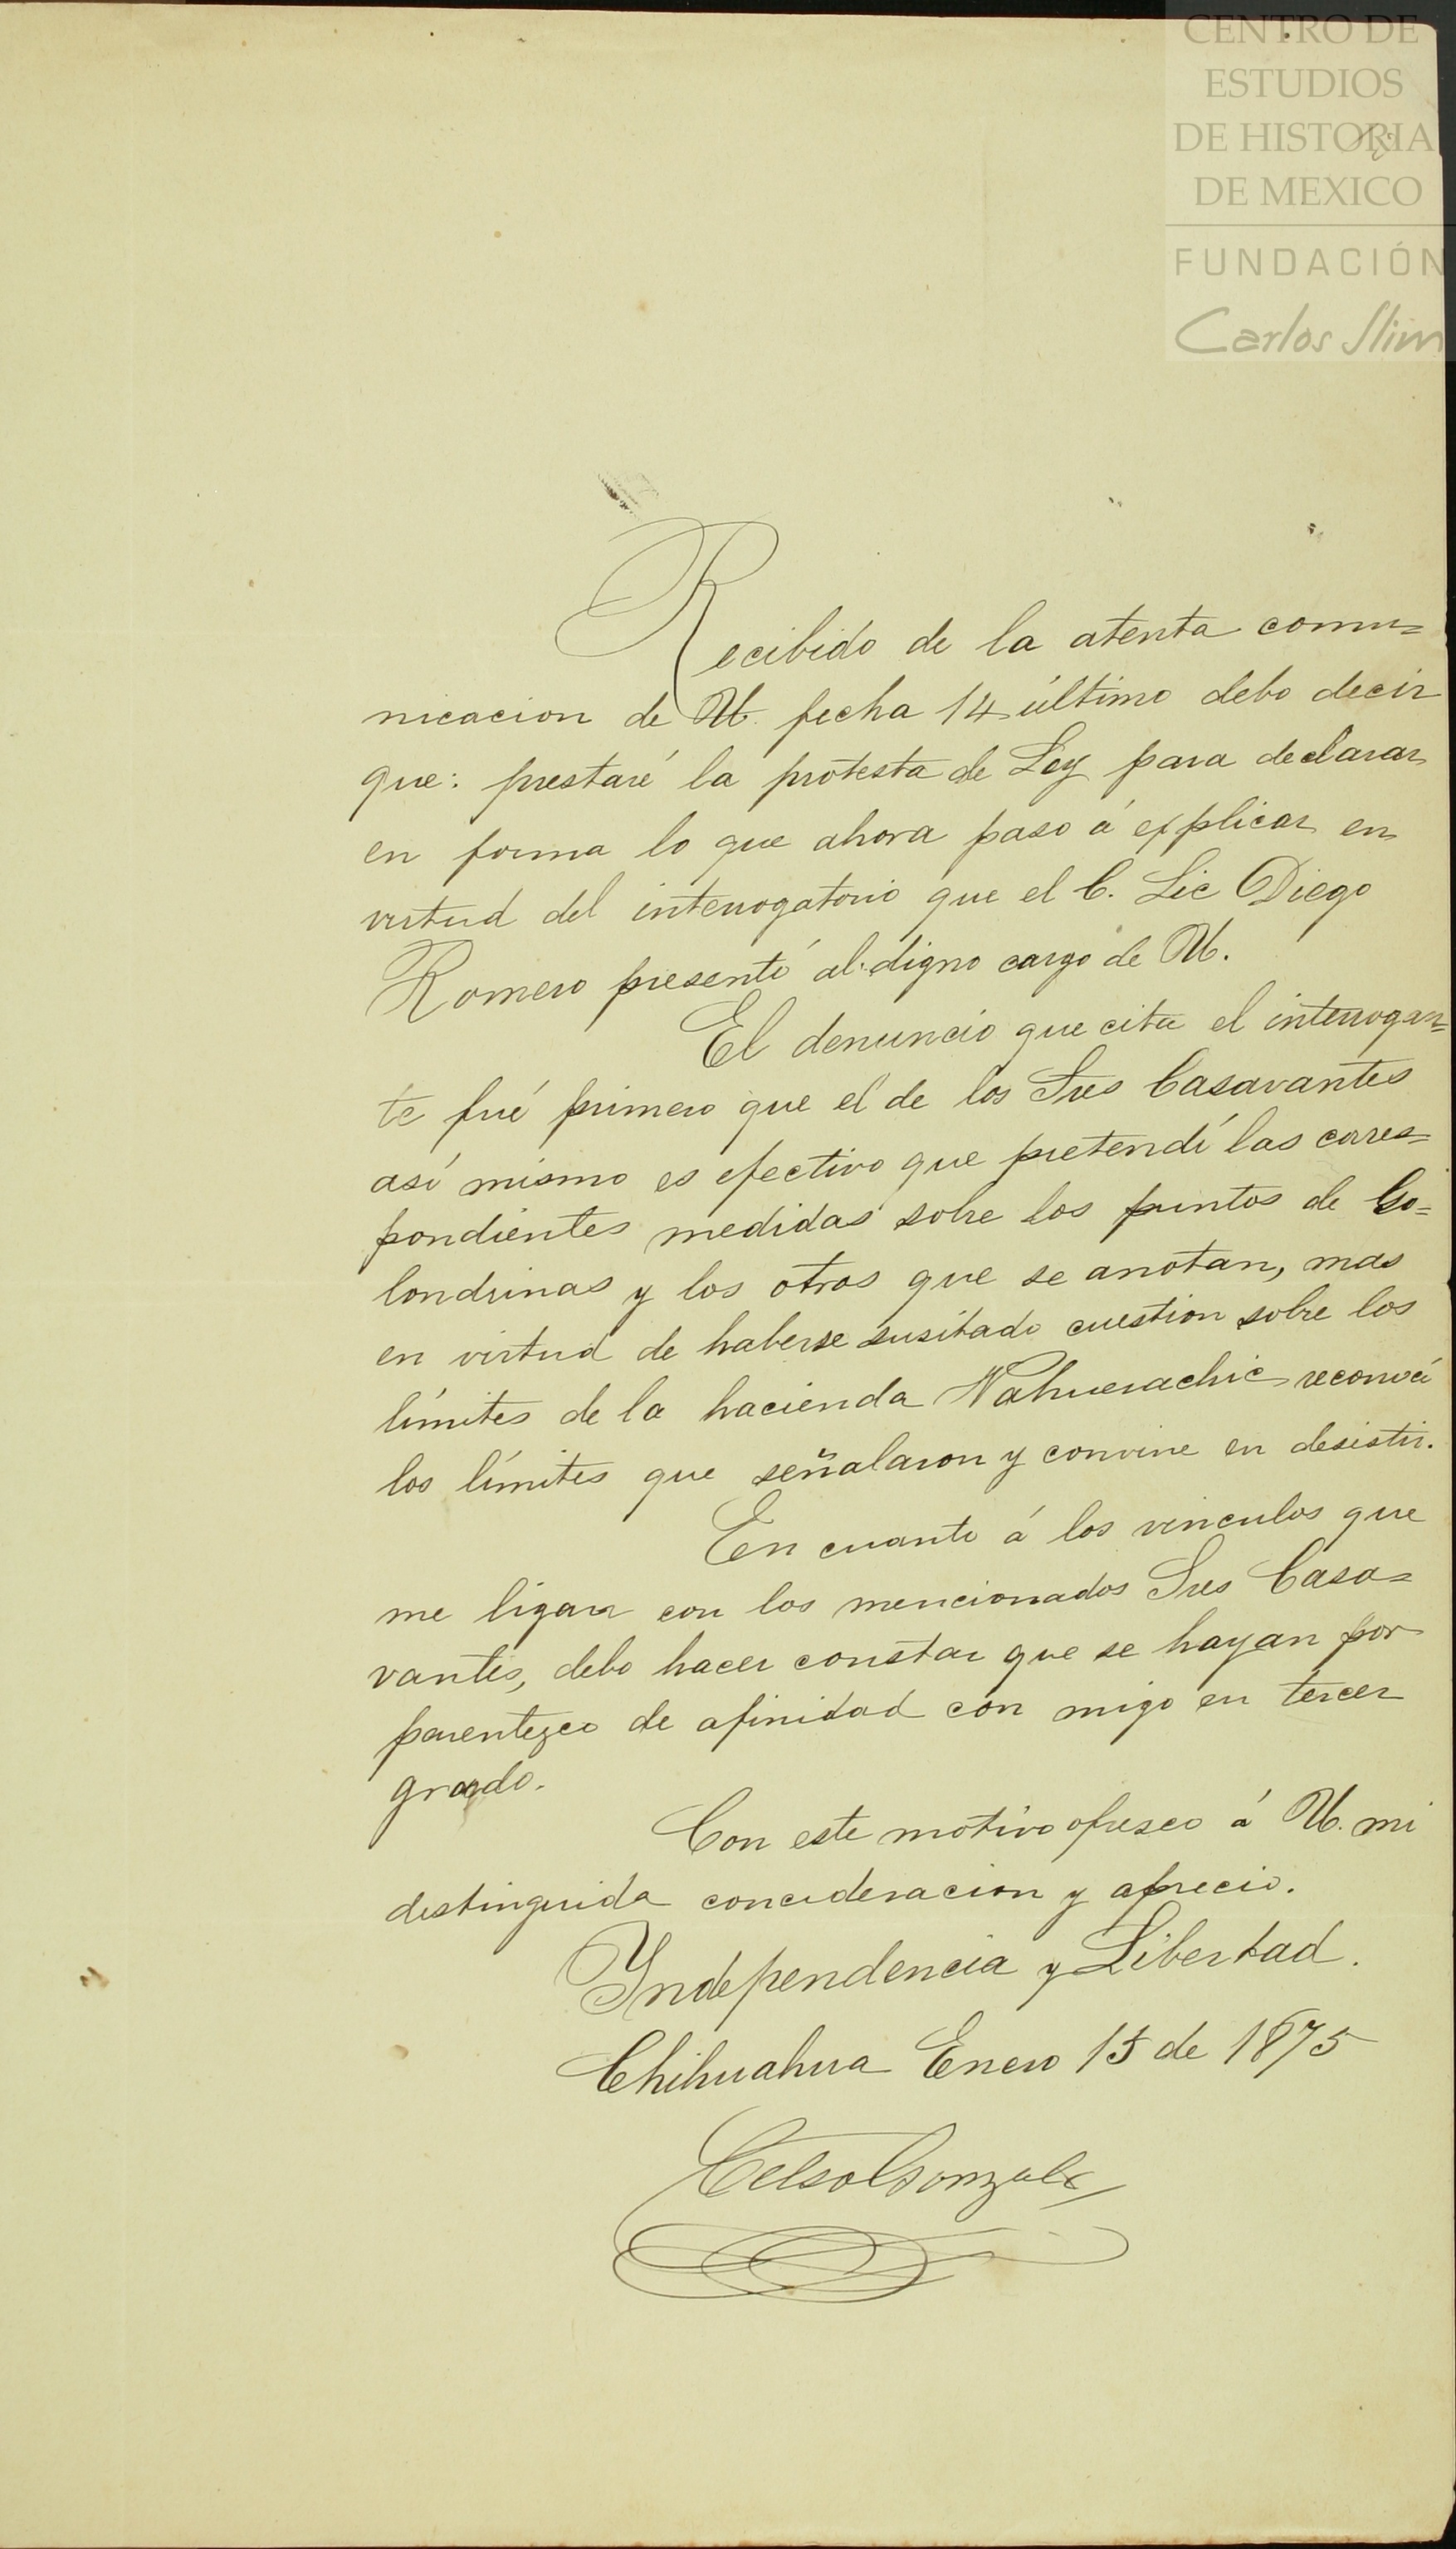 CENTRO DE
ESTUDIOS
DE HISTORIA
DE MEXICO
FUNDACIÓN
Carlos Slim
Recibido de la atenta comu=
nicacion de U. fecha 14 último debo decir
que: prestaré la protesta de Ley para declarar
en forma lo que ahora paso á explicar en
virtud del interrogatorio que el C. Lic Diego
Romero presentó al digno cargo de U.
El denuncio que cita el interrogan=
te fué primero que el de los Sres Casavantes
así mismo es efectivo que pretendí las corres=
pondientes medidas sobre los puntos de Go=
londrinas y los otros que se anotan, mas
en virtud de haberse susitado cuestion sobre los
límites de la hacienda Nahuerachic reconocí
los límites que señalaron y convine en desistir.
En cuanto á los vinculos que
me ligan con los mencionados Sres Casa=
vantes, debo hacer constar que se hayan por
parentezco de afinidad con migo en tercer
grado.
Con este motivo ofresco á U. mi
distinguida concideracion y aprecio.
Yndependencia y Libertad.
Chihuahua Enero 15 de 1875
Celso Gonzalez